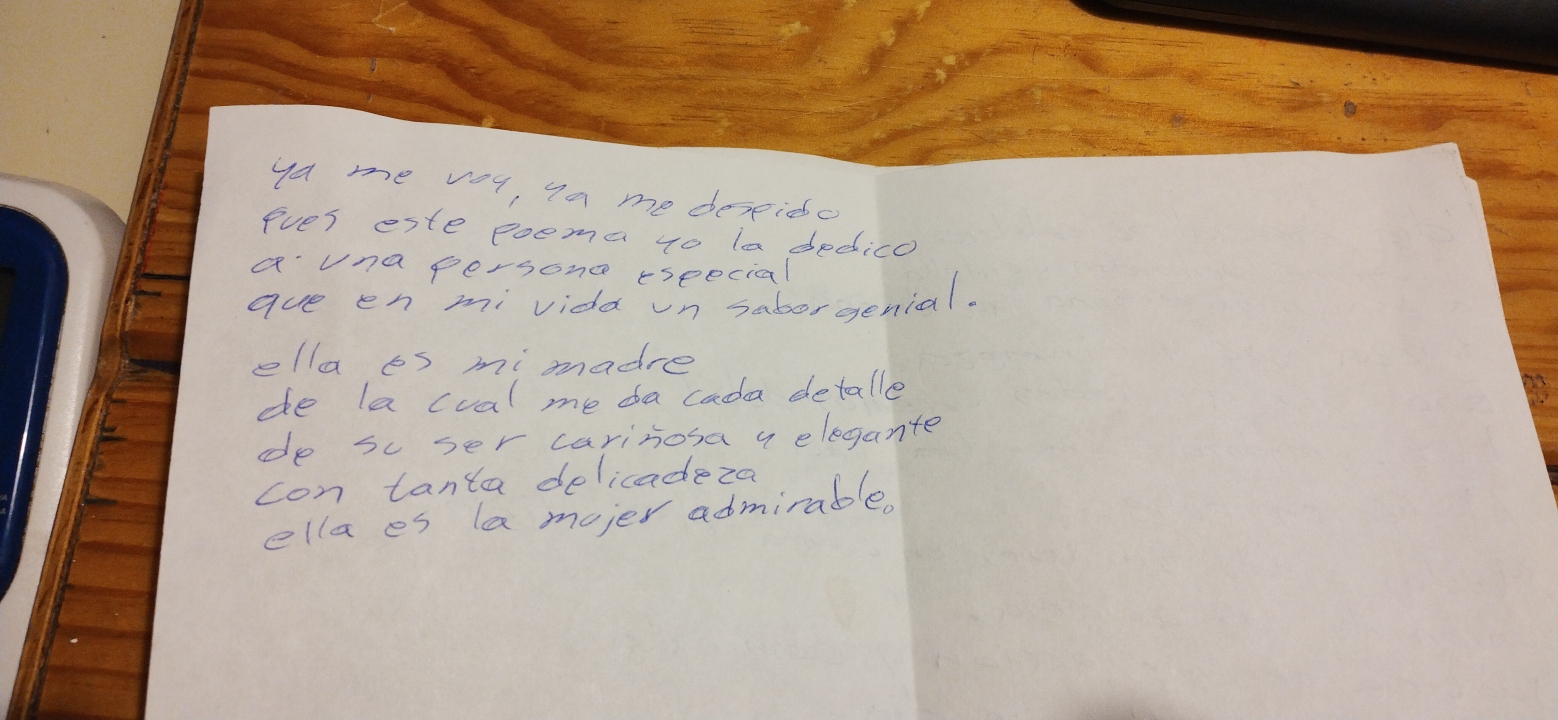 ya me voy, ya me despido
pues este poema yo la dedico
a una persona especial
que en mi vida un sabor genial.
ella es mi madre
de la cual me da cada detalle
de su ser cariñosa y elegante
con tanta delicadeza
ella es la mujer admirable.